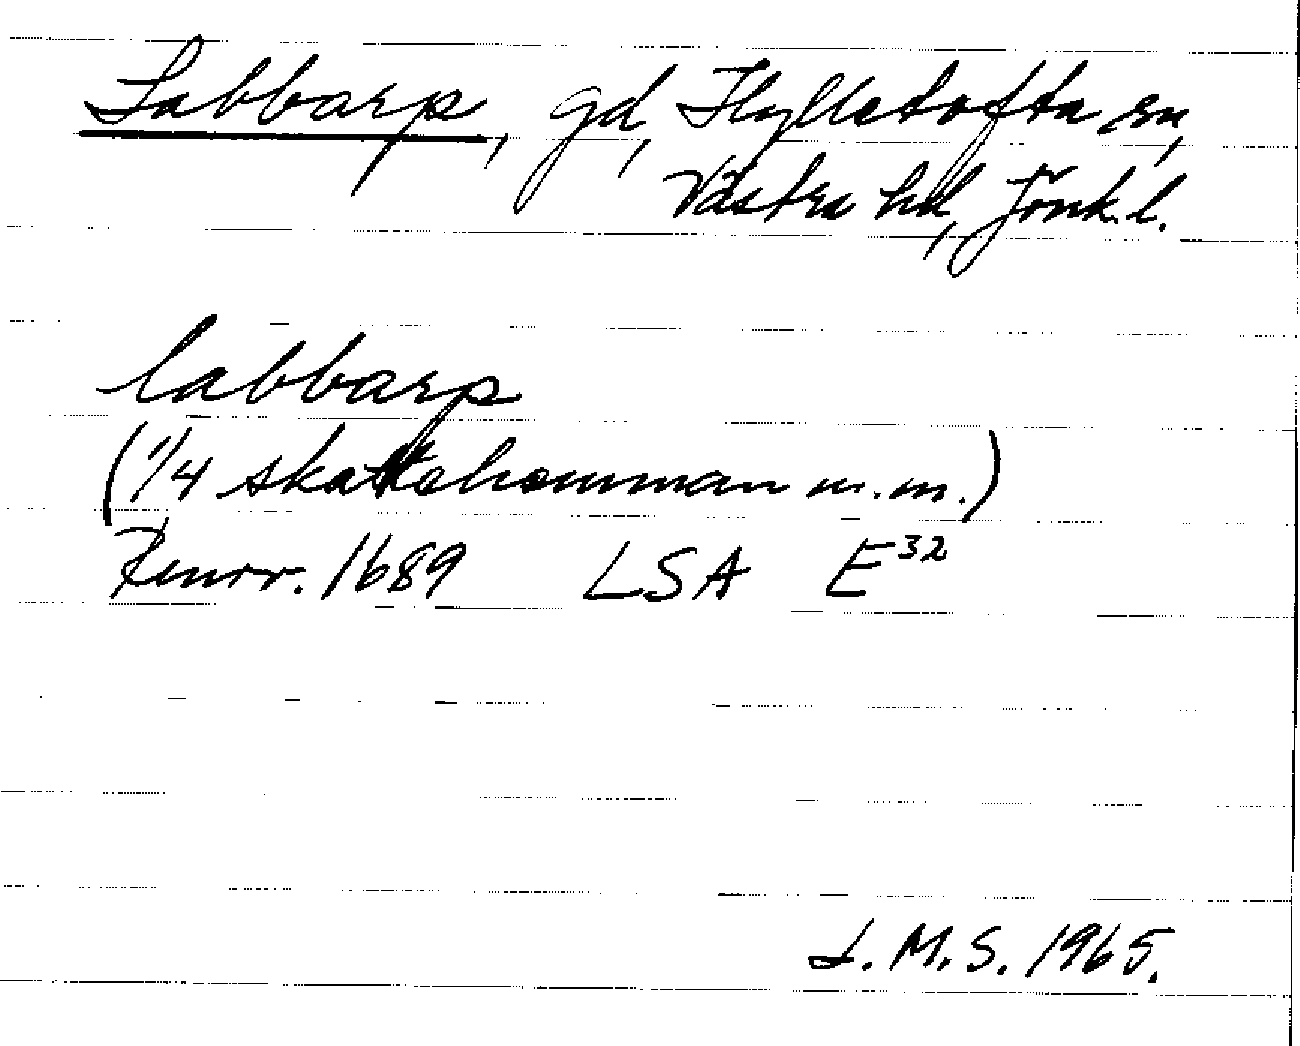 Labbarp, gd, Hylletofta sn,
Västra hd, Jönk. l.
labbarp
(1/4 skattehemman m.m.)
Renov. 1689 LSA E³²
L.M.S. 1965.